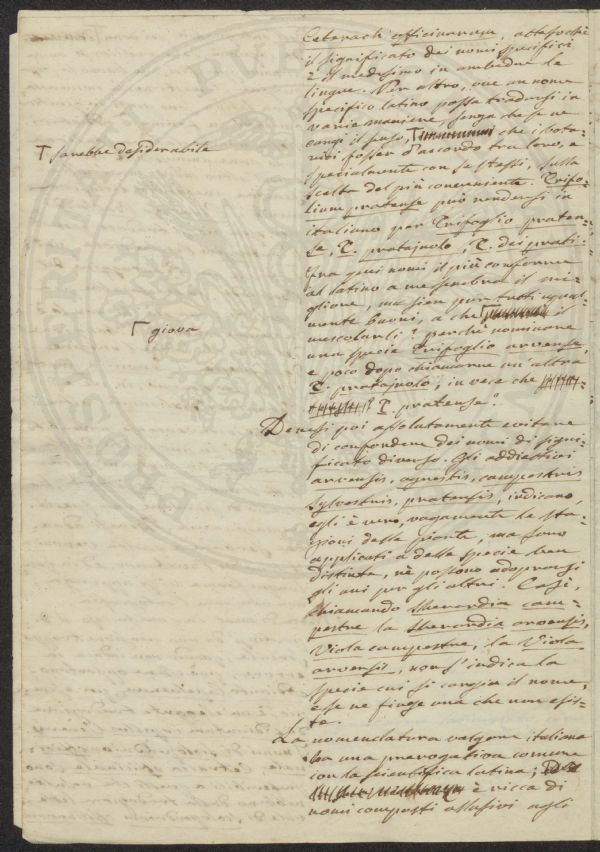 Ceterach officinarum, attesochè
il significato dei nomi specifici
è il medesimo in ambedue le
lingue. Per altro, ove un nome
specifico latino possa tradursi in
varie maniere, senza che se ne
cangi il senso, Γ che i bota-
nici fosser d'accordo tra loro, e
specialmente con se stessi, sulla
scelta del più conveniente. Trifo-
lium pratense può rendersi in
italiano per Trifoglio praten-
se, T. pratajuolo, T. dei prati:
fra quei nomi il più conforme
al latino a me sembra il mi-
gliore, ma sien pur tutti ugual-
mente buoni, a che Γ il
mescolarli? perchè nominare
una specie Trifoglio arvense,
e poco dopo chiamarne un'altra
T. pratajuolo, in vece che
T. pratense?
Γ sarebbe desiderabile
Γ giova
Devesi poi assolutamente evitare
di confondere dei nomi di signi-
ficato diverso. Gli addiettivi
arvensis, agrestis, campestris
sylvestris, pratensis, indicano,
egli è vero, vagamente le sta-
zioni delle piante, ma sono
applicati a delle specie ben
distinte, nè possono adoprarsi
gli uni per gli altri. Così,
chiamando Sherardia cam-
pestre la Sherardia arvensis,
Viola campestre, la Viola
arvensis, non s'indica la
specie cui si cangia il nome,
e se ne finge una che non esis-
te.
La nomenclatura volgare italiana
ha una prerogativa comune
con la scientifica latina;
è ricca di
nomi composti allusivi agli